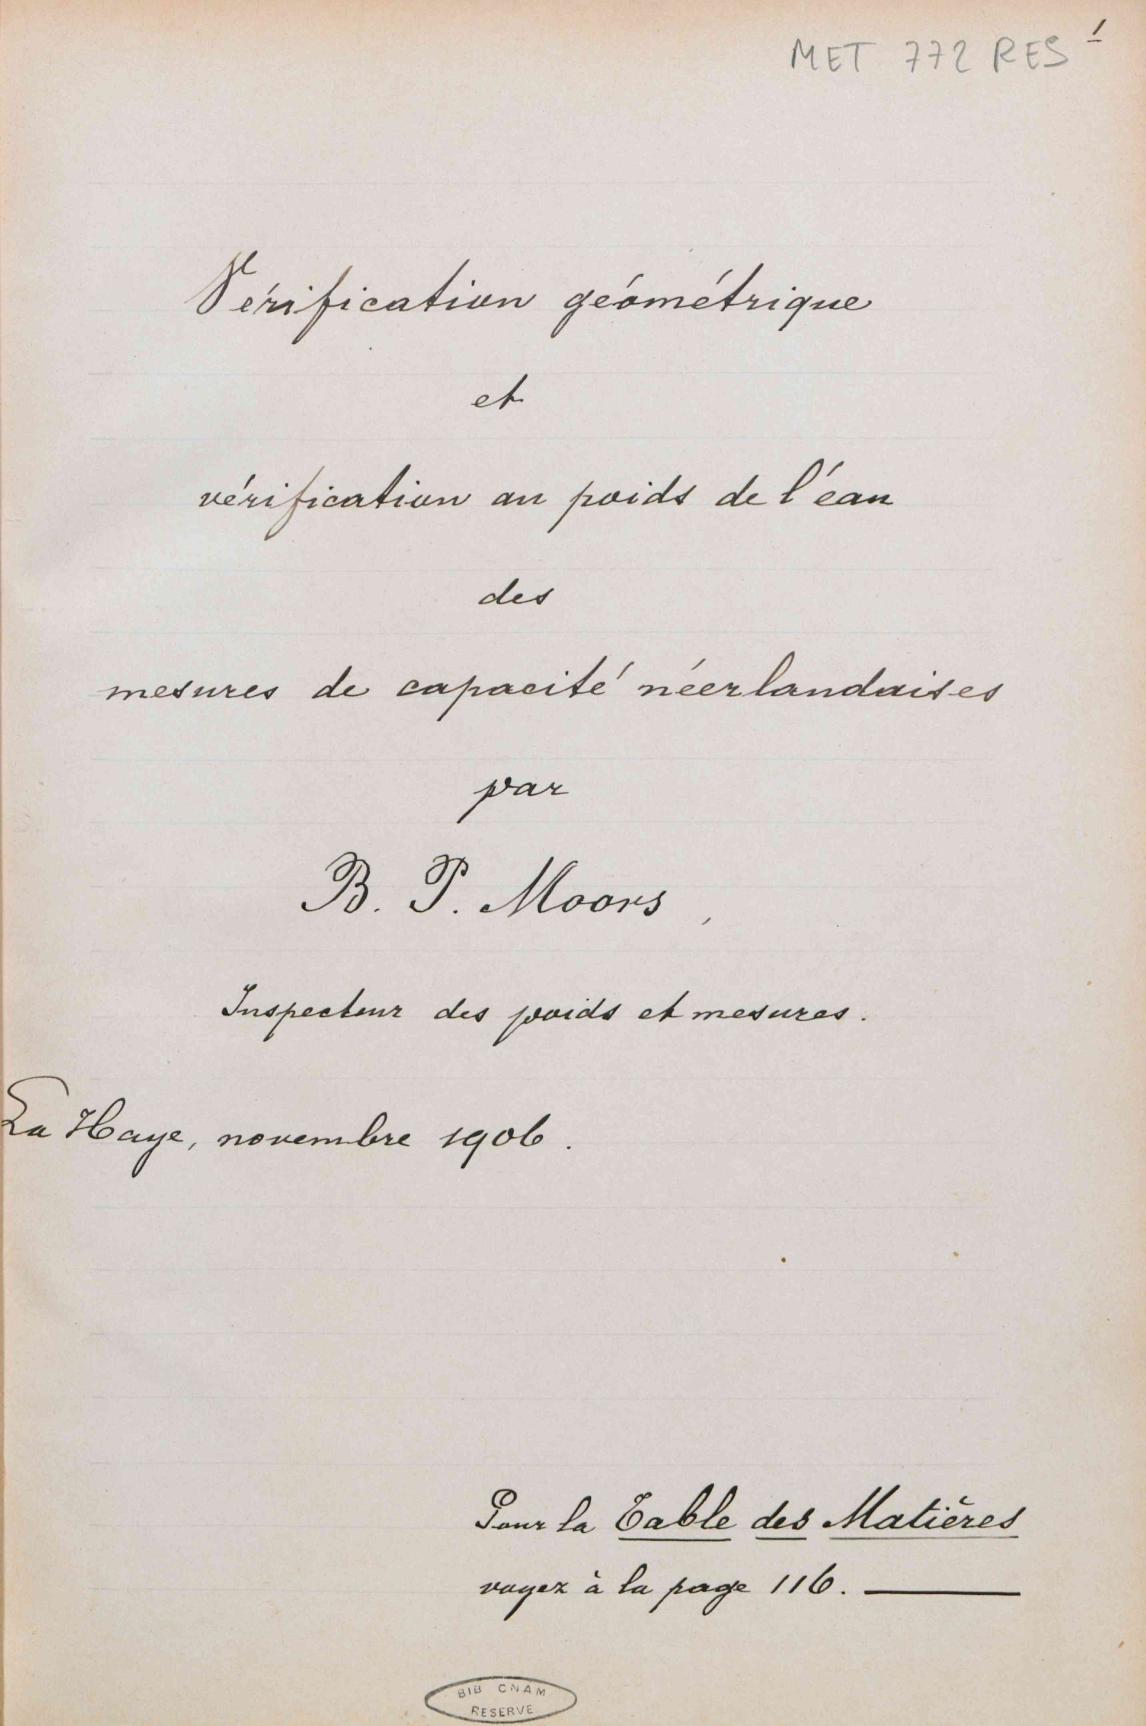 1
MET 772 RES
Vérification géométrique
et
vérification au poids de l'éau
des
mesures de capacité néerlandaises
par
B. P. Moors,
Inspecteur des poids et mesures.
La Haye, novembre 1906.
Pour la Table des Matières
voyez à la page 116.
BIB CNAM
RESERVE